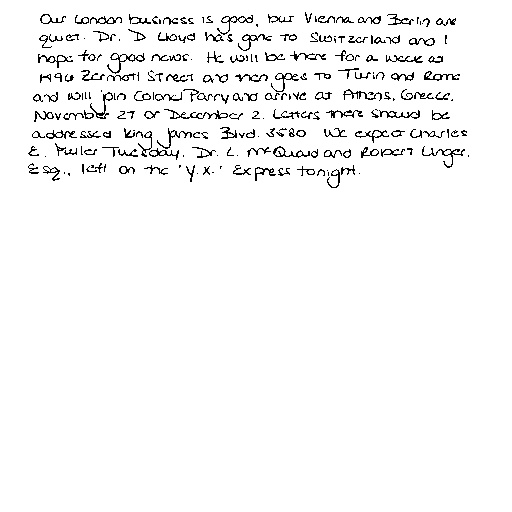 Our London business is good, but Vienna and Berlin are
quiet. Dr. D Lloyd has gone to Switzerland and I
hope for good news. He will be there for a week at
1496 Zermott Street and then goes to Turin and Rome
and will join Colonel Parry and arrive at Athens, Greece,
November 27 or December 2. Letters there should be
addressed King James Blvd. 3580. We expect Charles
E. Fuller Tuesday. Dr. L. McQuaid and Robert Unger,
Esq., left on the 'Y.X.' Express tonight.